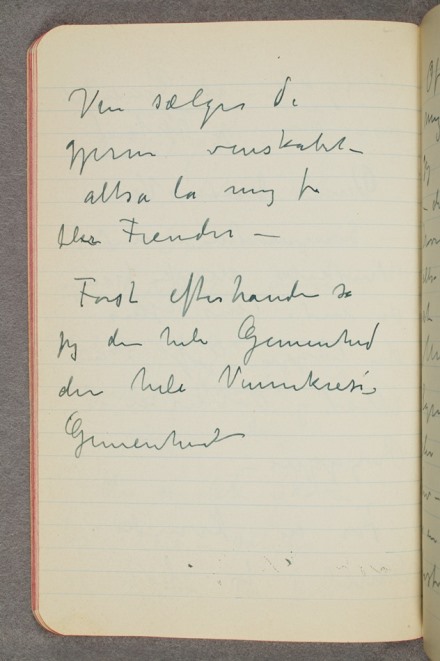 Ven sælges De
gjerne venskabet –
altsa la mig fa
flere Fiender –
Forst efterhanden sa
jeg den hele Gemenhed
den hele Vennekreds
Gemenhed